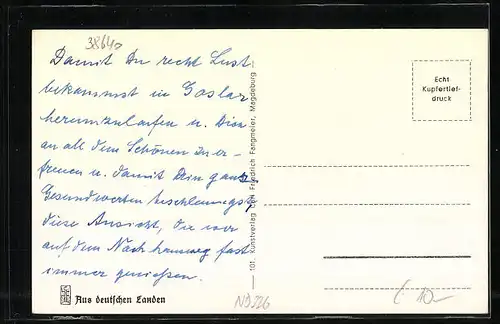 38640
Damit Du recht Lust
bekommst in Goslar
herumzulaufen u. Dich
an all dem Schönen zu er-
freuen u. damit Dein ganz
diese Ansicht, die wir
auf dem Nachhauseweg fast
immer genießen.
Aus deutschen Landen
101. Kunstverlag Carl Friedrich Fangmeier, Magdeburg
Echt
Kupfertief-
druck
N9526